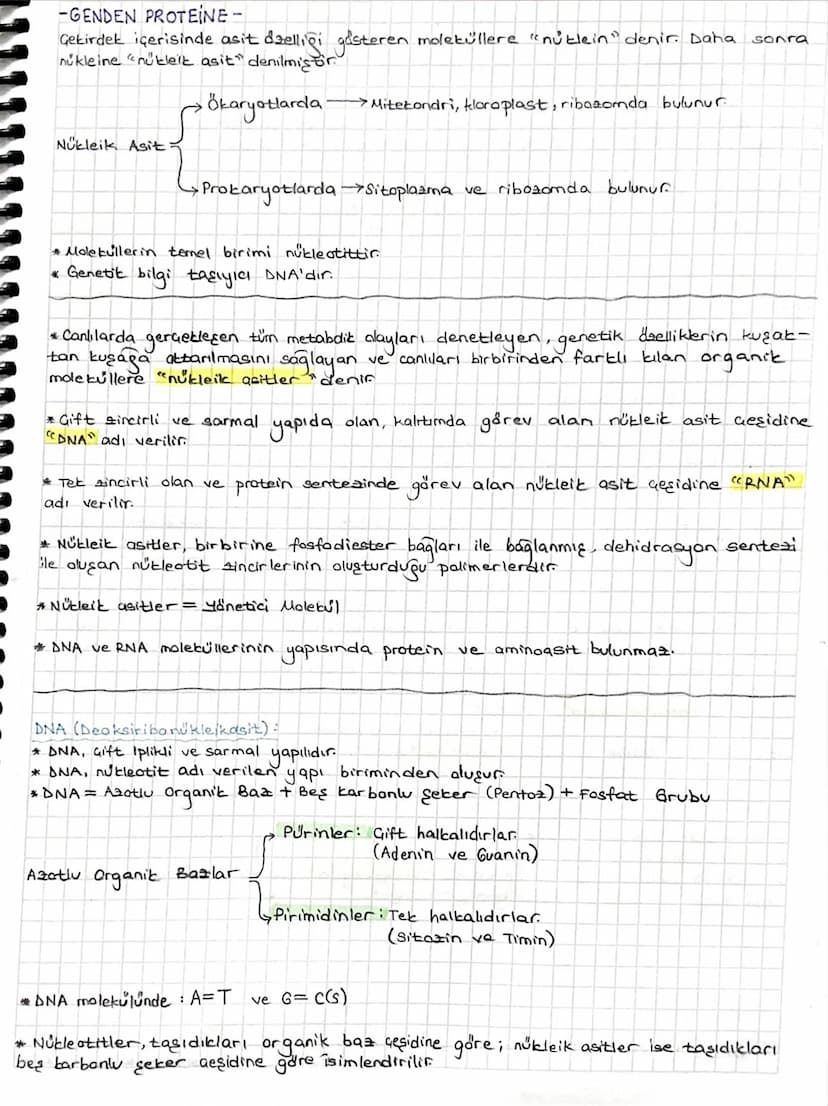 -GENDEN PROTEİNE-
Çekirdek içerisinde asit özelliği gösteren moleküllere "nüklein" denir. Daha sonra
nükleine "nükleik asit" denilmiştir.
Ökaryotlarda → Mitekondri, kloroplast, ribozomda bulunur.
Nükleik Asit
Prokaryotlarda → Sitoplazma ve ribozomda bulunur.
* Moleküllerin temel birimi nükleotittir.
* Genetik bilgi taşıyıcı DNA'dır.
* Canlılarda gerçekleşen tüm metabolik olayları denetleyen, genetik özelliklerin kuşak-
tan kuşağa aktarılmasını sağlayan ve canlıları birbirinden farklı kılan organik
moleküllere "nükleik asitler" denir.
* Çift zincirli ve sarmal yapıda olan, kalıtımda görev alan nükleik asit çeşidine
"DNA" adı verilir.
* Tek zincirli olan ve protein sentezinde görev alan nükleik asit çeşidine "RNA"
adı verilir.
* Nükleik asitler, birbirine fosfodiester bağları ile bağlanmış, dehidrasyon sentezi
ile oluşan nükleotit zincirlerinin oluşturduğu polimerlerdir.
* Nükleik asitler = Yönetici Molekül
* DNA ve RNA moleküllerinin yapısında protein ve aminoasit bulunmaz.
DNA (Deoksiribonükleikasit):
* DNA, çift iplikli ve sarmal yapılıdır.
* DNA, nükleotit adı verilen yapı biriminden oluşur.
* DNA = Azotlu Organik Baz + Beş karbonlu şeker (Pentoz) + Fosfat Grubu
Pürinler: Çift halkalıdırlar.
(Adenin ve Guanin)
Azotlu Organik Bazlar
Pirimidinler: Tek halkalıdırlar.
(Sitozin ve Timin)
* DNA molekülünde : A=T ve G= C(S)
* Nükleotitler, taşıdıkları organik baz çeşidine göre; nükleik asitler ise taşıdıkları
beş karbonlu şeker çeşidine göre isimlendirilir.